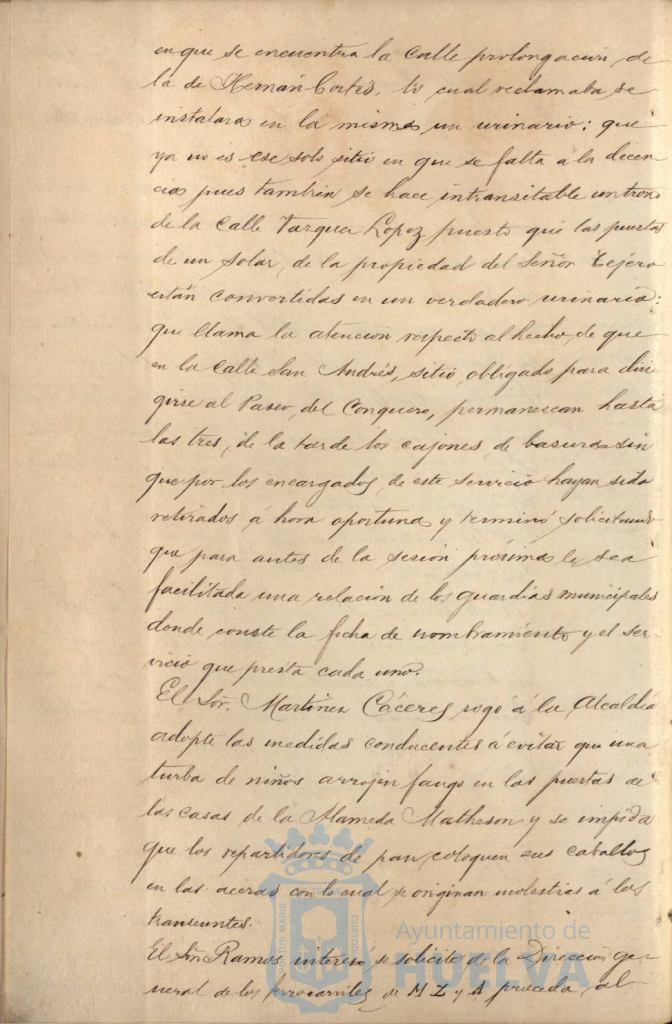 en que se encuentra la Calle prolongacion de
la de Hernán-Cortés, lo cual reclamaba se
instalara en la misma un urinario; que
ya no es ese solo sitio en que se falta á la decen
cia pues tambien se hace intransitable un trozo
de la Calle Vazquez Lopez puesto que las puertas
de un solar, de la propiedad del Señor Tejero
están convertidas en un verdadero urinario;
que llama la atencion respecto al hecho de que
en la Calle San Andrés, sitio obligado para diri
girse al Paseo del Conquero, permanezcan hasta
las tres, de la tarde los cajones de basura sin
que por los encargados de este servicio hayan sido
retirados á hora oportuna y terminó solicitando
que para antes de la sesion próxima le sea
facilitada una relacion de los guardias municipales
donde conste la fecha de nombramiento y el ser-
vicio que presta cada uno.
El Sor. Martinez Cáceres rogó á la Alcaldia
adopte las medidas conducentes á evitar que una
turba de niños arrojen fango en las puertas de
las casas de la Alameda Matheson y se impida
que los repartidores de pan coloquen sus caballos
en las aceras con lo cual se originan molestias á los
transeuntes.
El Sr. Ramos interesó se solicite de la Direccion ge-
neral de los ferrocarriles de M Z y A proceda, al
Ayuntamiento de
HUELVA